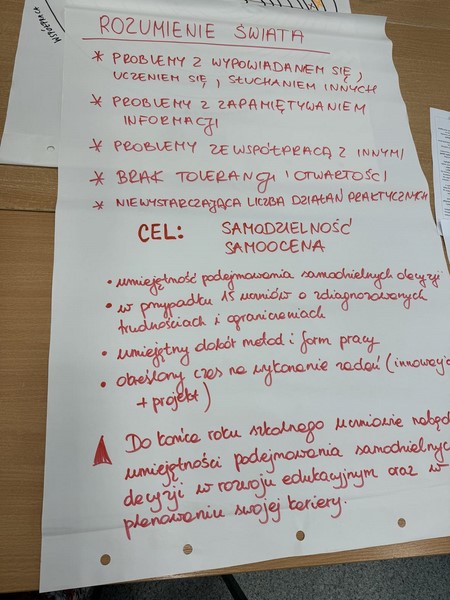 WSPÓŁPRACA
ROZUMIENIE ŚWIATA
* PROBLEMY Z WYPOWIADANEM SIĘ,
UCZENIEM SIĘ, SŁUCHANIEM INNYCH
* PROBLEMY Z ZAPAMIĘTYWANIEM
INFORMACJI
* PROBLEMY ZE WSPÓŁPRACĄ Z INNYMI
* BRAK TOLERANCJI I OTWARTOŚCI
* NIEWYSTARCZAJĄCA LICZBA DZIAŁAŃ PRAKTYCZNYCH
CEL: SAMODZIELNOŚĆ
SAMOOCENA
• umiejętność podejmowania samodzielnych decyzji
• w przypadku 15 uczniów o zdiagnozowanych
trudnościach i ograniczeniach
• umiejętny dobór metod i form pracy
• określony czas na wykonanie zadań (innowacja
+ projekt)
Do końca roku szkolnego uczniowie nabędą
umiejętności podejmowania samodzielnych
decyzji w rozwoju edukacyjnym oraz w
planowaniu swojej kariery.